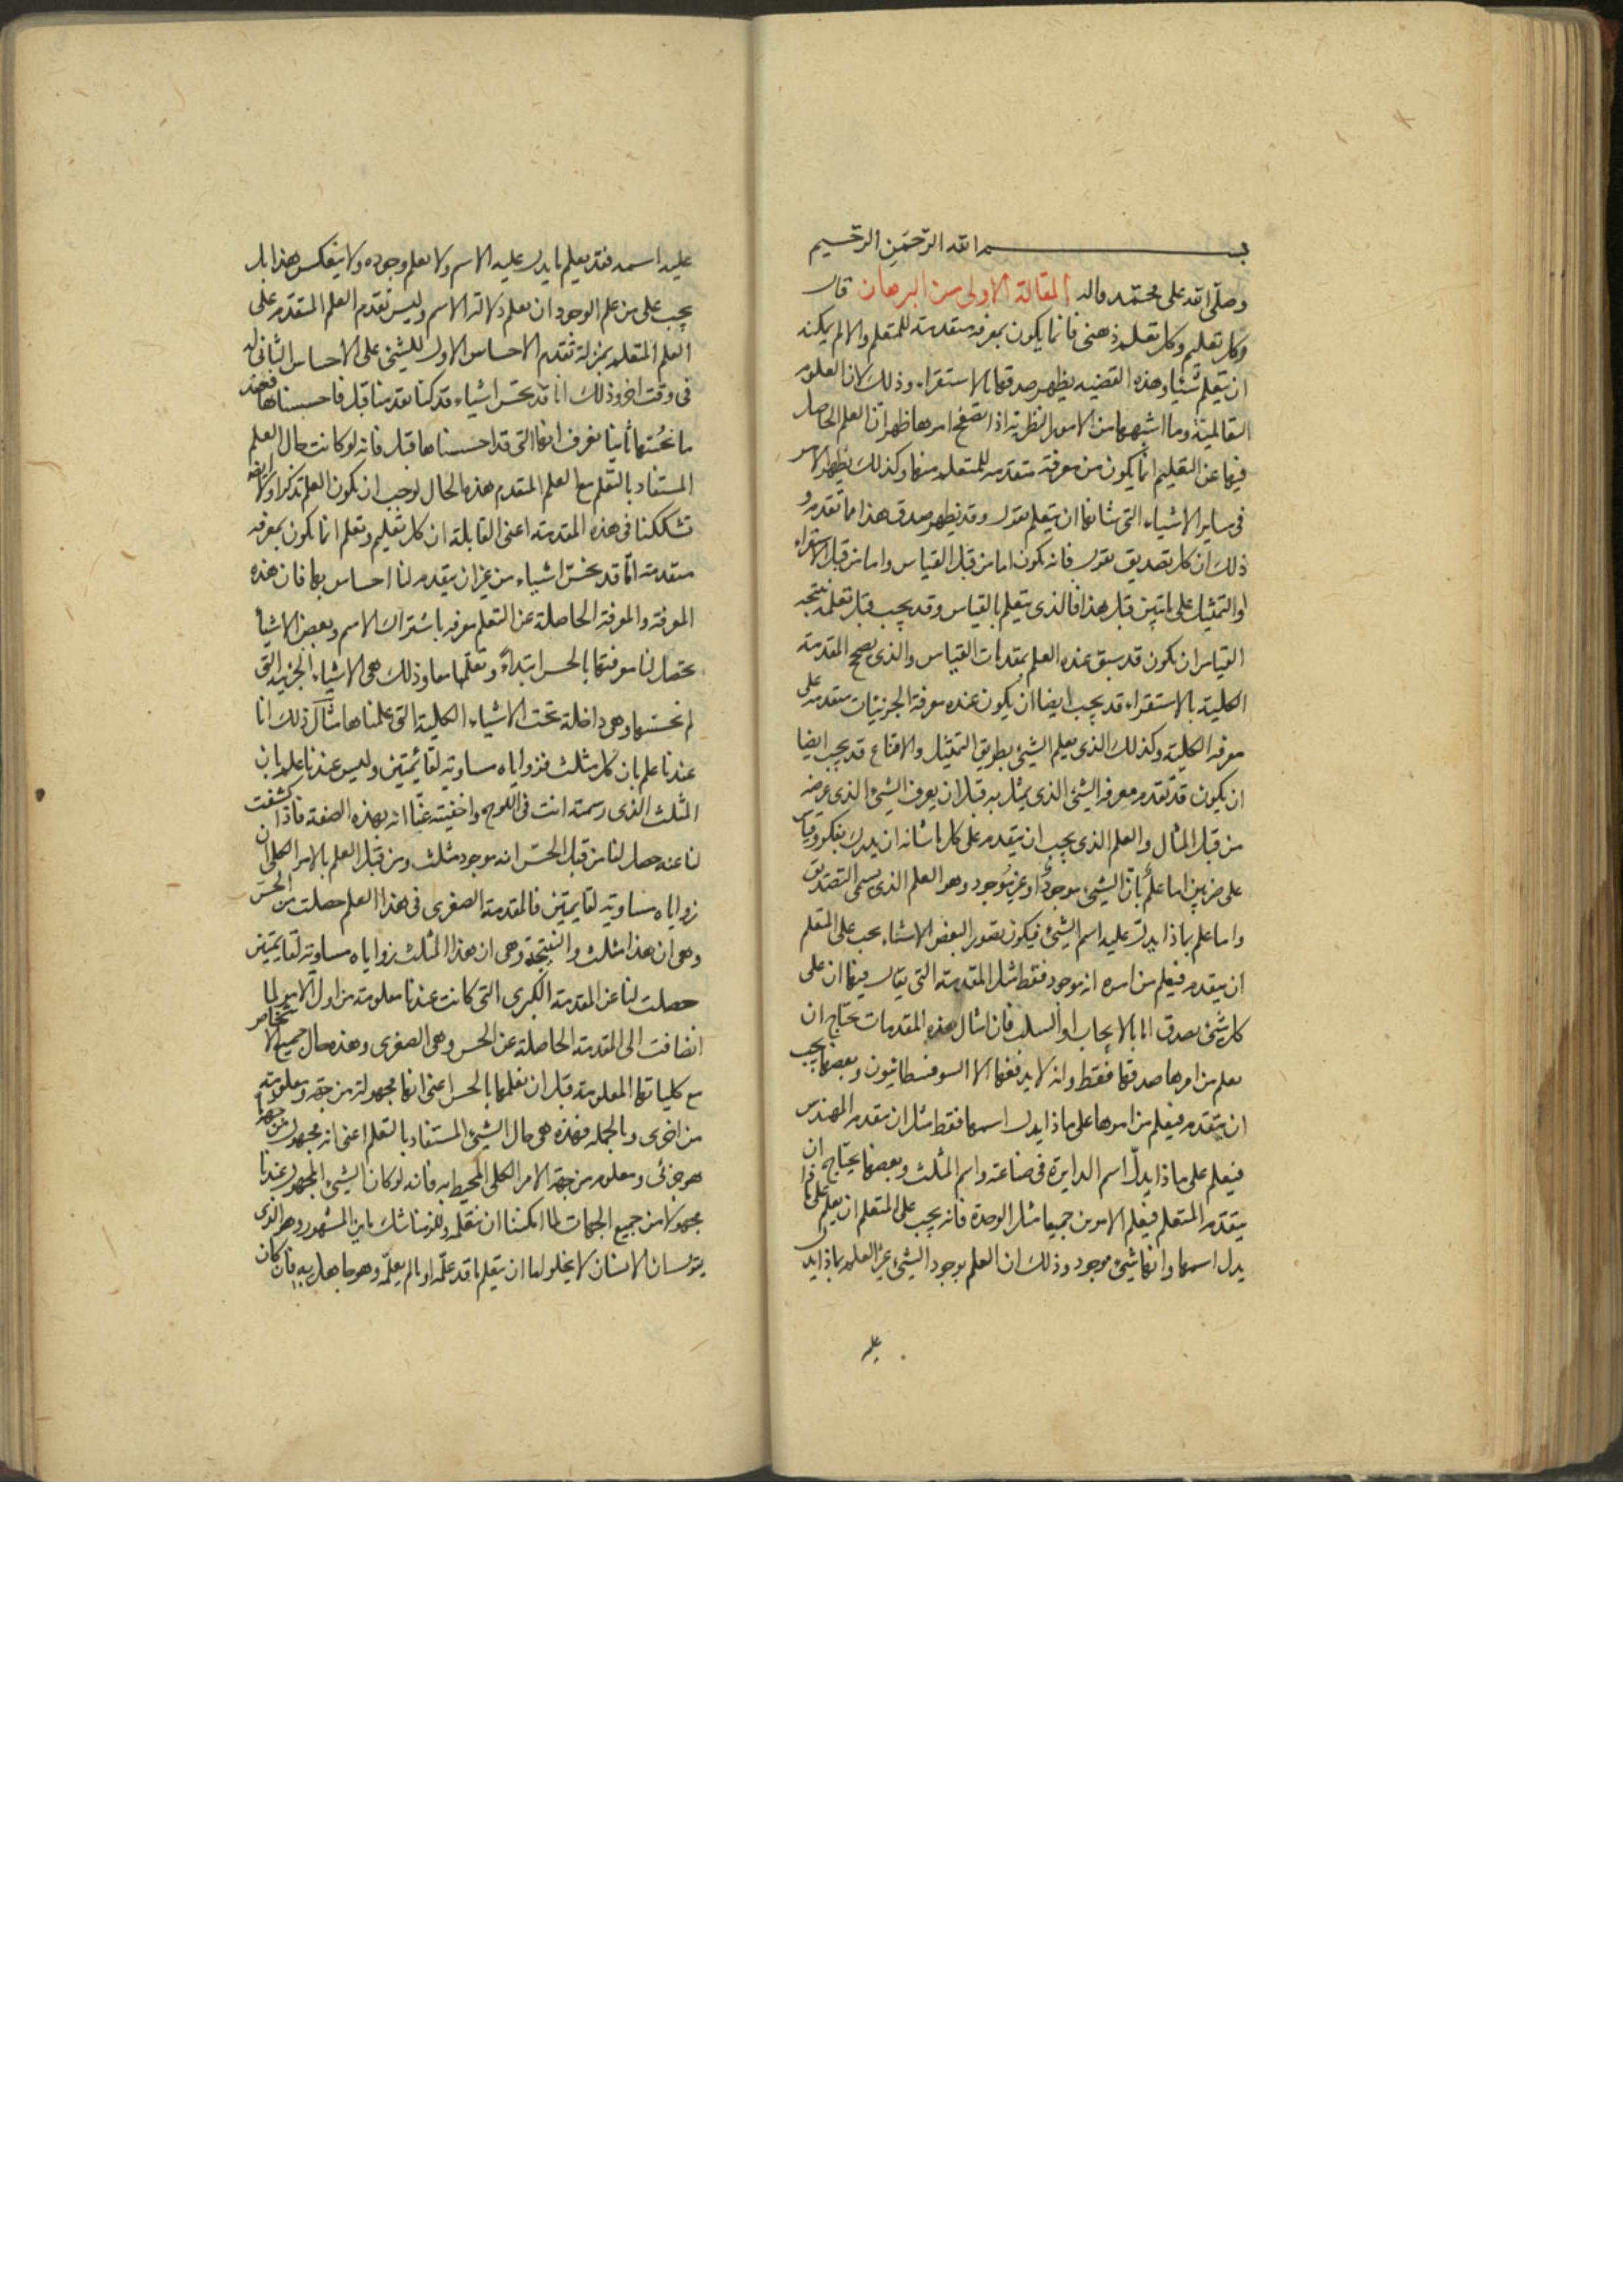 بسم الله الرحمن الرحيم
وصلى الله على محمد واله المقالة الاولى من البرهان قال
وكل تعليم وكل تعلم ذهنى فانما يكون بمعرفه متقدمة للمتعلم والا لم يمكنه
ان يتعلم شيئا وهذه القضيه يظهر صدقها بالاستقراء وذلك لان العلوم
التعاليمية وما اشبهها من الامور النظرية اذا تصفح امرها ظهر ان العلم الحاصل
فيها عن التعليم انما يكون من معرفة متقدمه للمتعلم منها وكذلك يظهر الامر
فى ساير الاشياء التى شانها ان يتعلم بقول وقد يظهر صدق هذا مما تقدم و
ذلك ان كل تصديق بقول فانه يكون اما من قبل القياس واما من قبل الاستقراء
او التمثيل على ما تبين قبل هذا فالذى يتعلم بالقياس وقد يجب قبل تعلمه نتيجه
القياس ان يكون قد سبق عنده العلم بمقدمات القياس والذى يصحح المقدمة
الكلية بالاستقراء قد يجب ايضا ان يكون عنده معرفة الجزئيات متقدمه على
معرفه الكلية وكذلك الذى يعلم الشئ بطريق التمثيل والاقناع قد يجب ايضا
ان يكون قد تقدم معرفه الشئ الذى يمثل به قبل ان يعرف الشئ الذى عرفه
من قبل المثال والعلم الذى يجب ان يتقدم على كل ما شانه ان يدرك بفكر وقياس
على ضربين اما علم بان الشئ موجود او غير موجود وهو العلم الذى يسمى التصديق
واما علم بماذا يدل عليه اسم الشئ فيكون تصور البعض الاشياء يجب على المتعلم
ان يتقدم فيعلم من امره انه موجود فقط مثل المقدمة التى يقال فيها ان على
كل شئ يصدق اما بالايجاب او السلب فان امثال هذه المقدمات تحتاج ان
يعلم من امرها صدقها فقط وانه لا يدفعها الا السوفسطائيون وبعضها يجب
ان يتقدم فيعلم من امرها على ماذا يدل اسمها فقط مثل ان يتقدم المهندس
فيعلم على ماذا يدل اسم الدايرة فى صناعته واسم المثلث وبعضها يحتاج ان
يتقدم المتعلم فيعلم الامرين جميعا مثل الوحدة فانه يجب على المتعلم ان يعلم على ماذا
يدل اسمها وانها شئ موجود وذلك ان العلم بوجود الشئ غير العلم بماذا يدل
عليه
عليه اسمه فقد يعلم ما يدل عليه الاسم ولا يعلم وجوده ولا ينعكس هذا بل
يجب على من علم الوجود ان يعلم دلالة الاسم وليس تقدم العلم المتقدم على
العلم المتعلم بمنزلة تقدم الاحساس الاول للشئ على الاحساس الثانى له
فى وقت اخر وذلك انا قد نحس اشياء قد كنا فقدناها قبل فاحسسناها فعند
ما نحسها ثانيا نعرف انها التى قد احسسناها قبل فانه لو كانت حال العلم
المستفاد بالتعلم مع العلم المتقدم هذه الحال لوجب ان يكون العلم تذكرا ولا
تشككنا فى هذه المقدمة اعنى القايلة ان كل تعليم وتعلم انما يكون بمعرفه
متقدمة انا قد نحس اشياء من غير ان يتقدم لنا احساس بها فان هذه
المعرفة والمعرفة الحاصلة عن التعلم معرفه باشتراك الاسم وبعض الاشيا
يحصل لنا معرفتها بالحس ابتداء وتعلمها معا وذلك هى الاشياء الجزئية التى
لم نحسها وهى داخلة تحت الاشياء الكلية التى علمناها مثال ذلك انا
عندنا علم بان كل مثلث فزواياه مساوية لقائمتين وليس عندنا علم بان
المثلث الذى رسمته انت فى اللوح واخفيته عنا انه بهذه الصفة فاذا كشفت
لنا عنه حصل لنا من قبل الحس انه موجود مثلث ومن قبل العلم بالامر الكلى ان
زواياه مساوية لقايمتين فالمقدمة الصغرى فى هذا العلم حصلت من الحس
وهى ان هذا مثلث والنتيجة وهى ان هذا المثلث زواياه مساوية لقايمتين
حصلت لنا عن المقدمة الكبرى التى كانت عندنا معلومة من اول الامر لما
انضافت الى المقدمة الحاصلة عن الحس وهى الصغرى وهذه حال جميع الاشخاص
مع كلياتها المعلومة قبل ان نعلمها بالحس اعنى انها مجهولة من جهة ومعلومة
من اخرى وبالجمله فهذه هى حال الشئ المستفاد بالتعلم اعنى انه مجهول من جهة ما
هو جزئى ومعلوم من جهة الامر الكلى المحيط به فانه لو كان الشئ المجهول عندنا
مجهولا من جميع الجهات لما امكننا ان نتعلمه وللزمنا شك مانن المشهور وهو الذى
يقول ان الانسان لا يخلو اما ان يتعلم ما قد علمه او ما لم يعلمه وهو جاهل به فان كان